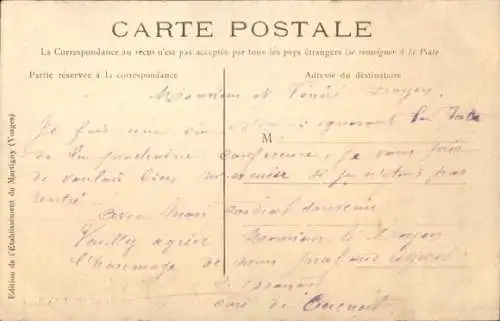 CARTE POSTALE
La Correspondance au recto n'est pas acceptée par tous les pays étrangers (se renseigner à la Poste
Partie réservée à la correspondance
Adresse du destinataire
Monsieur et Vénéré Doyen
Je fais une
ignorant la date
M
de la prochaine conférence, je vous prie
de vouloir bien si je n'étais pas
rentré
avec mon cordial souvenir
Veuillez agréer Monsieur le Doyen
l'hommage de mon profond respect
curé de
Edition de l'Etablissement de Martigny (Vosges)